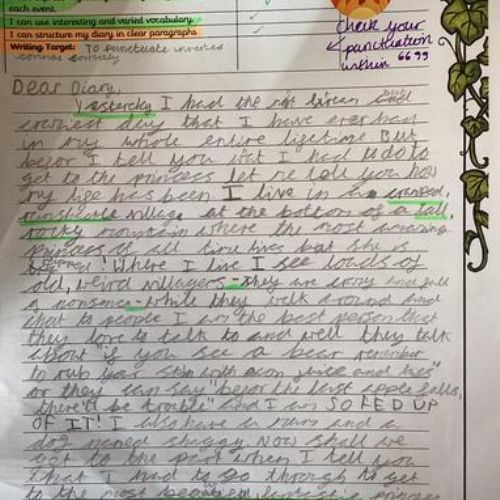 each event.
I can use interesting and varied vocabulary.
I can structure my diary in clear paragraphs
Writing Target: To punctuate inverted
commas correctly
check your
punctuation
within 66 99
Dear Diary,
Yesterday I had the
craziest day that I have ever had
in my whole entire lifetime But
befor I tell you wat I had to do to
get to the princess let me tell you how
my life has been. I live in a cramped,
minshcule village at the bottom of a tall,
rocky mountain where the most amazing
princess of all time lives but she is
Where I live I see loads of
old, weird villagers - they are crazy and full
of nonsence - while they walk around and
chat to people I am the best person that
they love to talk to and well they talk
about "if you see a bear remember
to rub your skin with acon juice and
or they can say "befor the last apple falls,
there'll be trouble" and I am SO FED UP
OF IT! I also have a mum and a
dog named shaggy. Now shall we
get to the part when I tell you
what I had to go through to get
to the most beautiful